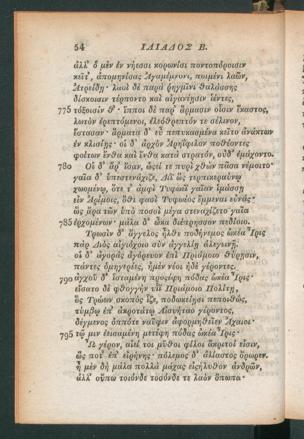 54 ΙΛΙΑΔΟΣ Β.
ἀλλ' ὁ μὲν ἐν νήεσσι κορωνίσι ποντοπόροισιν
κεῖτ', ἀπομηνίσας Ἀγαμέμνονι, ποιμένι λαῶν,
Ἀτρείδῃ· λαοὶ δὲ παρὰ ῥηγμῖνι θαλάσσης
δίσκοισιν τέρποντο καὶ αἰγανέῃσιν ἱέντες,
775 τόξοισίν θ'· ἵπποι δὲ παρ' ἅρμασιν οἷσιν ἕκαστος,
λωτὸν ἐρεπτόμενοι, ἐλεόθρεπτόν τε σέλινον,
ἕστασαν· ἅρματα δ' εὖ πεπυκασμένα κεῖτο ἀνάκτων
ἐν κλισίῃς· οἱ δ' ἀρχὸν Ἀρηΐφιλον ποθέοντες
φοίτων ἔνθα καὶ ἔνθα κατὰ στρατόν, οὐδ' ἐμάχοντο.
780 Οἱ δ' ἄρ' ἴσαν, ὡσεί τε πυρὶ χθὼν πᾶσα νέμοιτο·
γαῖα δ' ὑπεστενάχιζε, Διῒ ὣς τερπικεραύνῳ
χωομένῳ, ὅτε τ' ἀμφὶ Τυφωέϊ γαῖαν ἱμάσσῃ
εἰν Ἀρίμοις, ὅθι φασὶ Τυφωέος ἔμμεναι εὐνάς·
ὣς ἄρα τῶν ὑπὸ ποσσὶ μέγα στεναχίζετο γαῖα
785 ἐρχομένων· μάλα δ' ὦκα διέπρησσον πεδίοιο.
Τρωσὶν δ' ἄγγελος ἦλθε ποδήνεμος ὠκέα Ἶρις
πὰρ Διὸς αἰγιόχοιο σὺν ἀγγελίῃ ἀλεγεινῇ.
οἱ δ' ἀγορὰς ἀγόρευον ἐπὶ Πριάμοιο θύρῃσιν,
πάντες ὁμηγερέες, ἠμὲν νέοι ἠδὲ γέροντες.
790 ἀγχοῦ δ' ἱσταμένη προσέφη πόδας ὠκέα Ἶρις·
εἴσατο δὲ φθογγὴν υἷϊ Πριάμοιο Πολίτῃ,
ὃς Τρώων σκοπὸς ἷζε, ποδωκείῃσι πεποιθώς,
τύμβῳ ἐπ' ἀκροτάτῳ Αἰσυήταο γέροντος,
δέγμενος ὁππότε ναῦφιν ἀφορμηθεῖεν Ἀχαιοί·
795 τῷ μιν ἐεισαμένη μετέφη πόδας ὠκέα Ἶρις·
Ὦ γέρον, αἰεί τοι μῦθοι φίλοι ἄκριτοί εἰσιν,
ὥς ποτ' ἐπ' εἰρήνης· πόλεμος δ' ἀλίαστος ὄρωρεν.
ἦ μὲν δὴ μάλα πολλὰ μάχας εἰσήλυθον ἀνδρῶν,
ἀλλ' οὔπω τοιόνδε τοσόνδε τε λαὸν ὄπωπα·